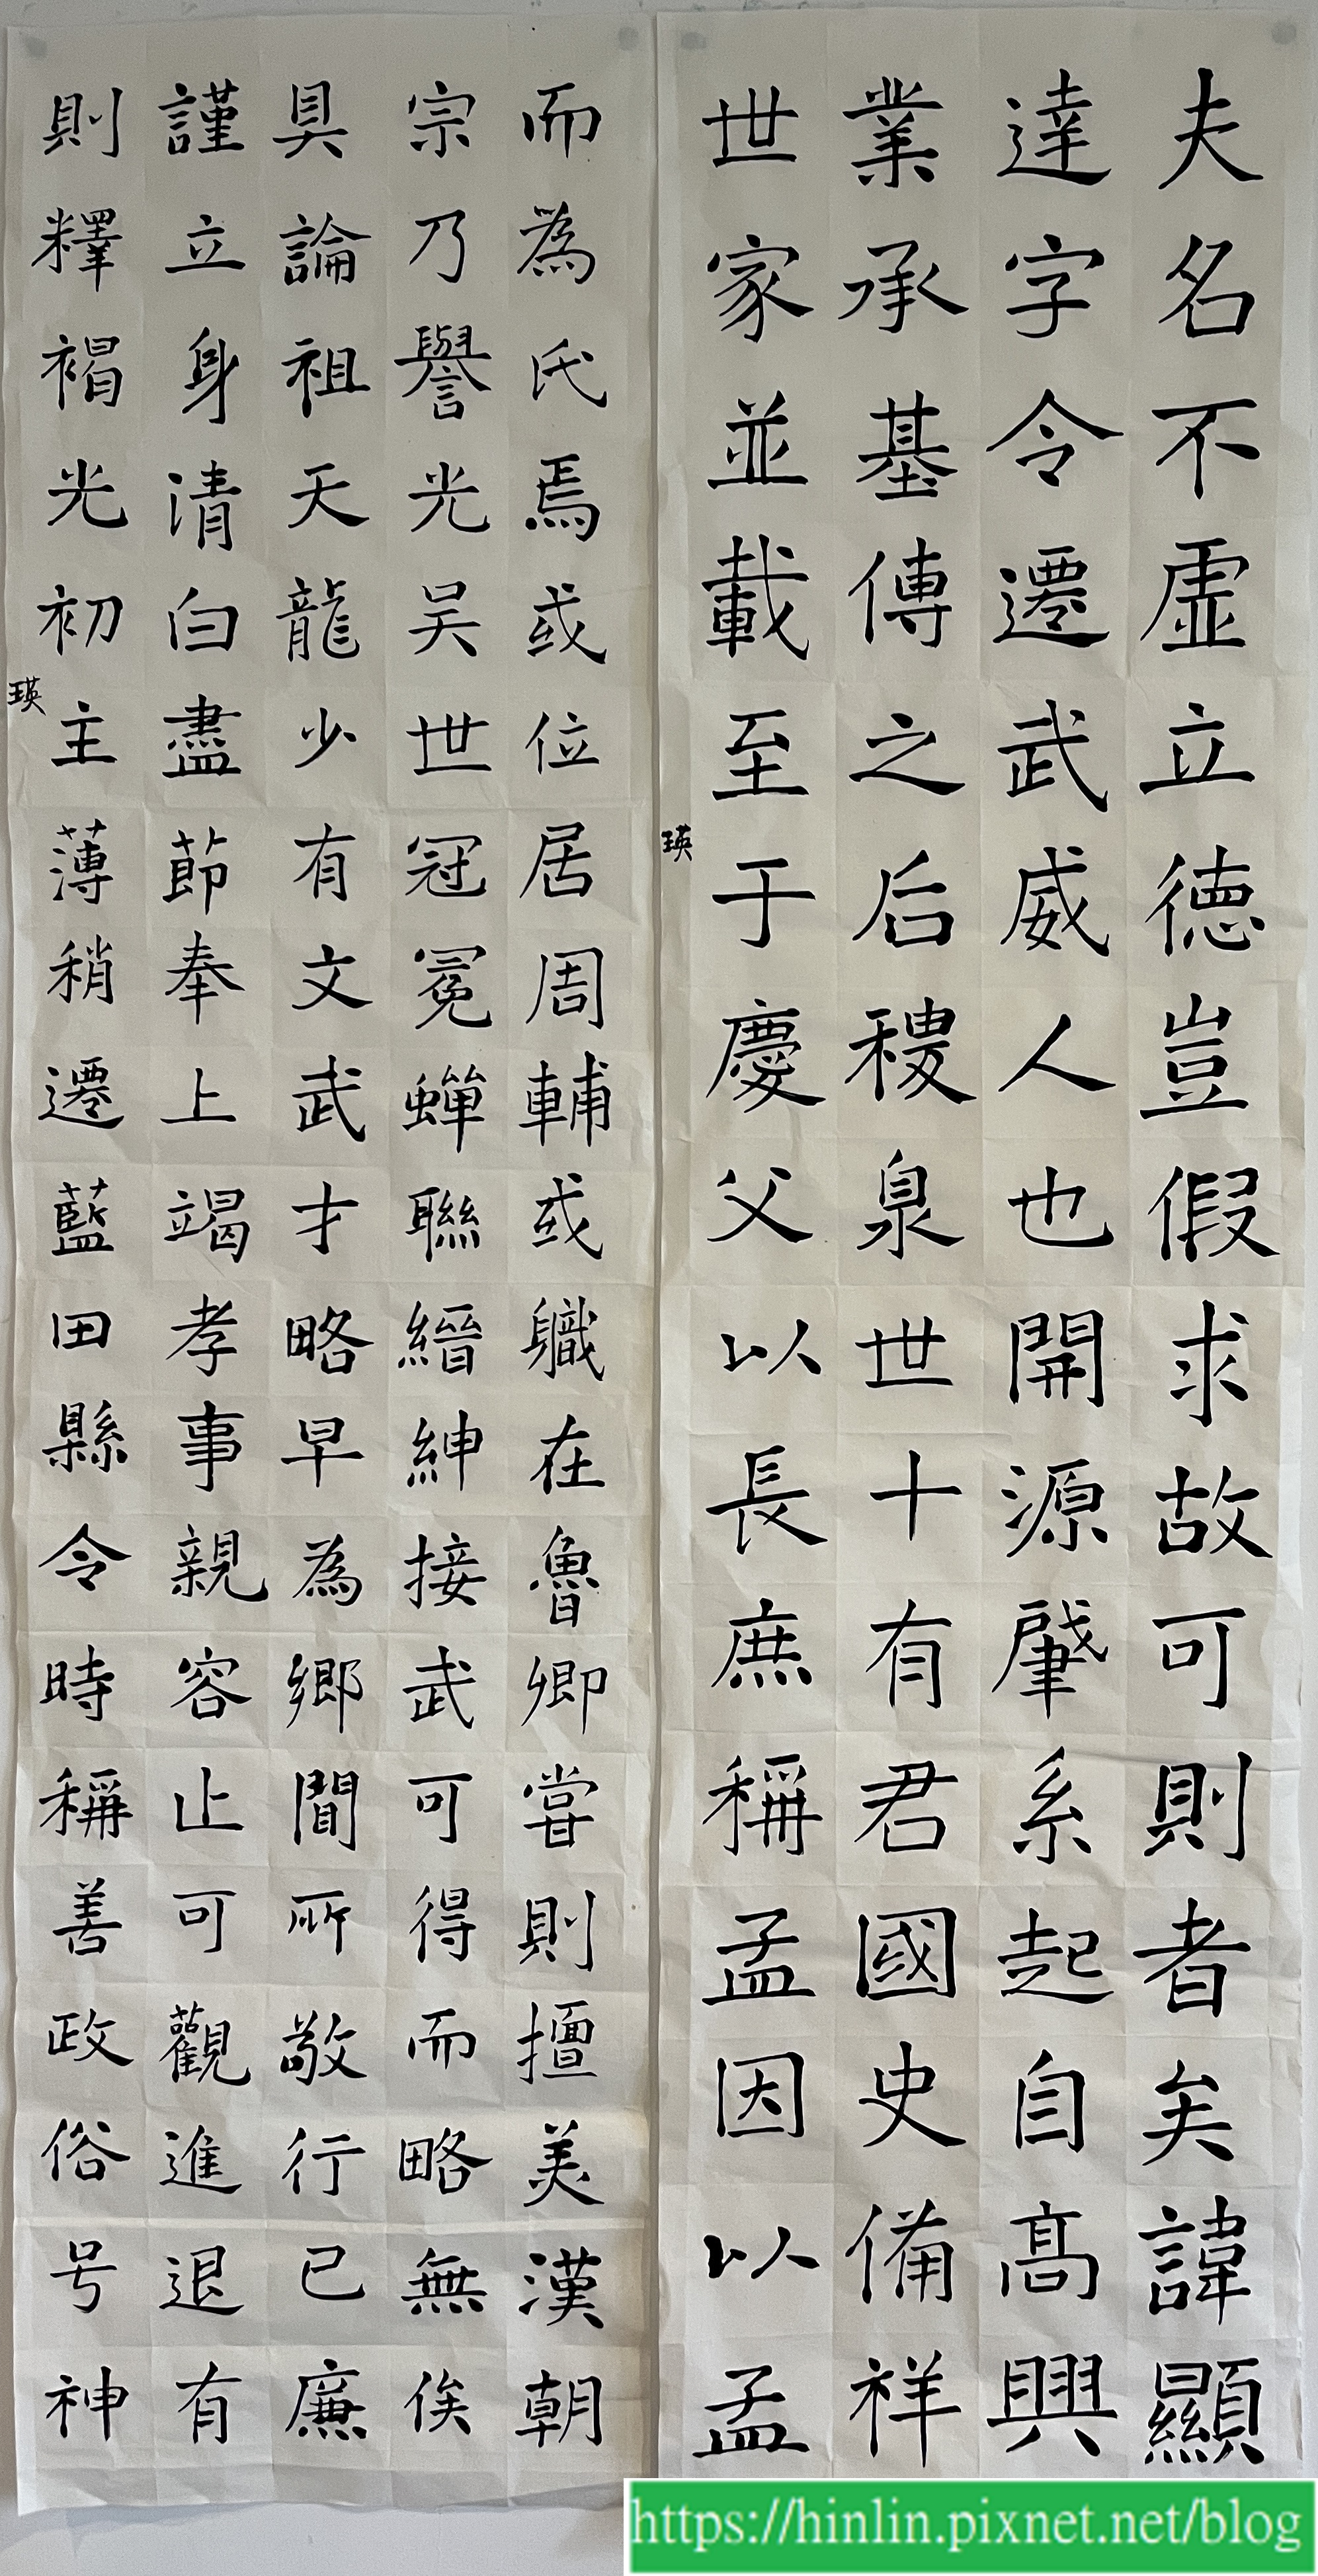 夫名不虛立德豈假求故可則者矣諱顯
達字令遷武威人也開源肇系起自高興
業承基傳之后稷泉世十有君國史備祥
世家並載至于慶父以長庶稱孟因以孟
瑛
而為氏焉或位居周輔或職在魯卿當則擅美漢朝
宗乃譽光吴世冠冕蟬聯縉紳接武可得而略無俟
具論祖天龍少有文武才略早為鄉閭所敬行已廉
謹立身清白盡節奉上竭孝事親容止可觀進退有
則釋褐光初主薄稍遷藍田縣令時稱善政俗号神
瑛
https://hinlin.pixnet.net/blog